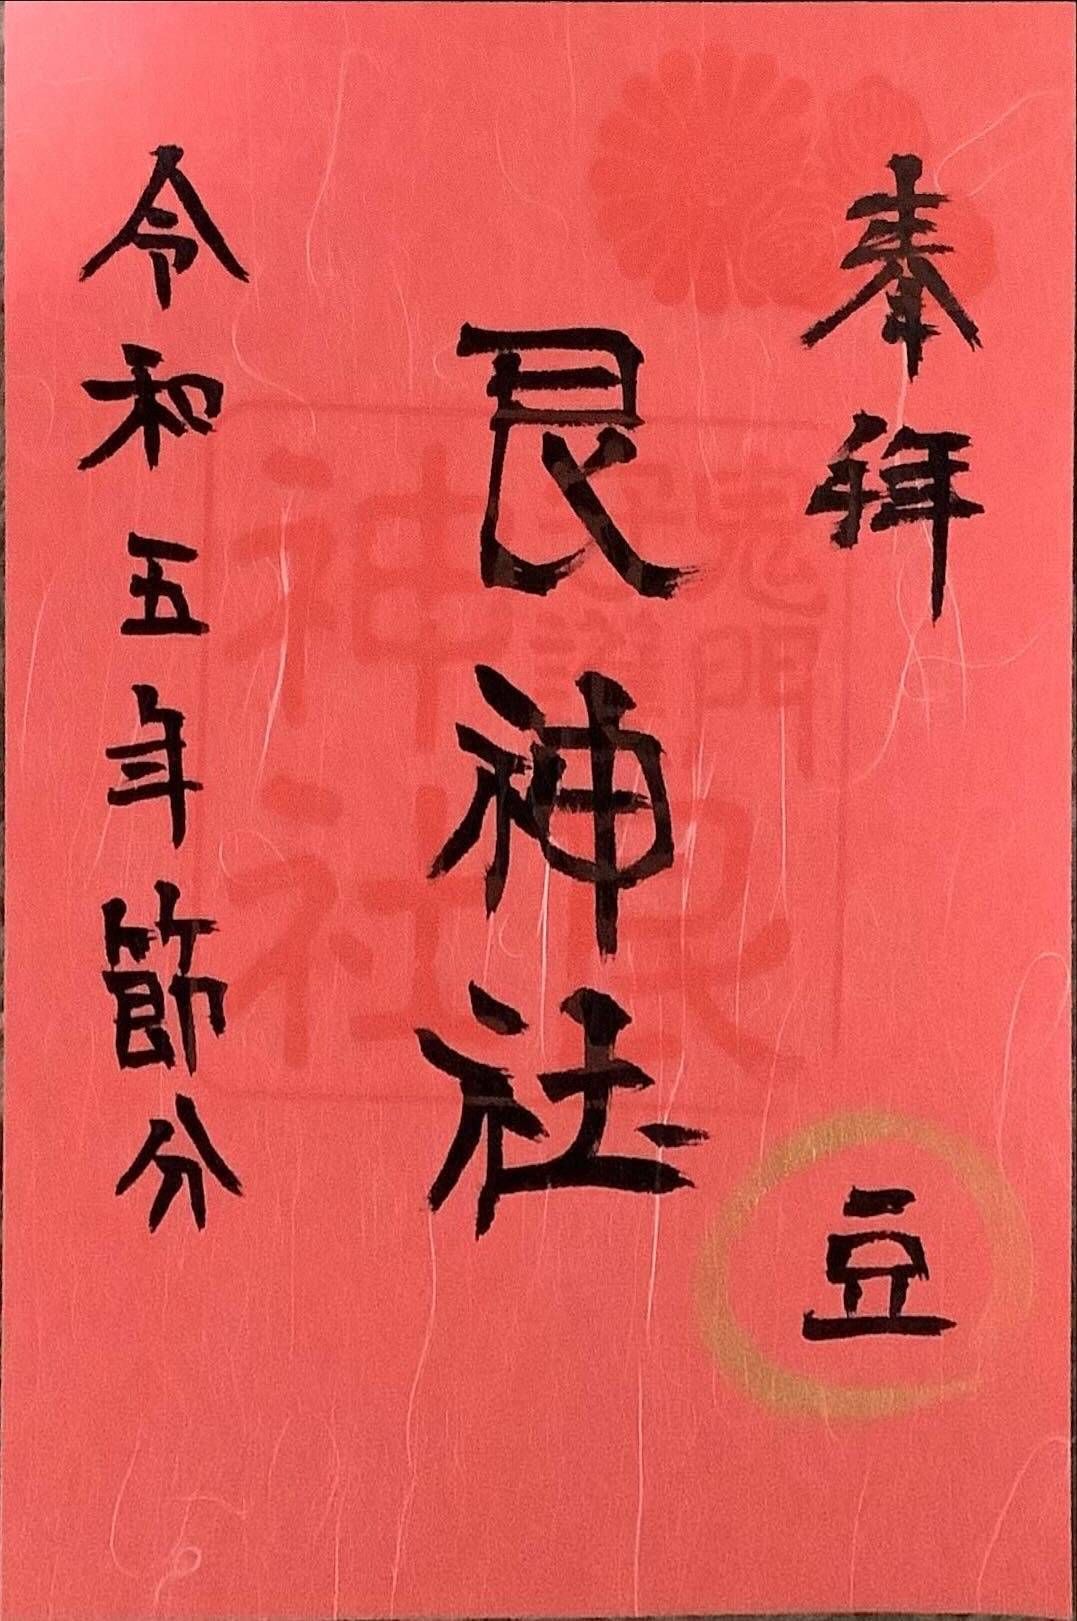 奉拝
豆
艮神社
鬼門
守護
艮
神社
令和五年節分